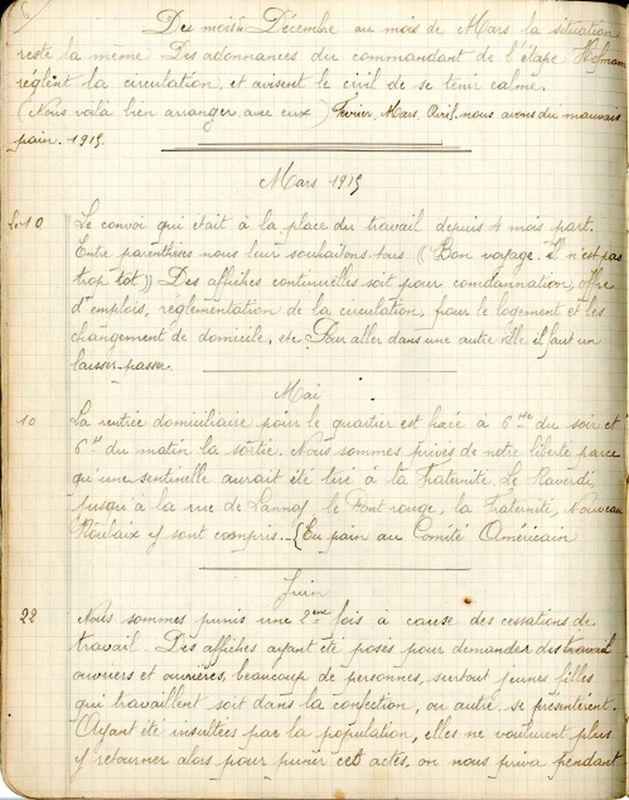 6
Du mois de Décembre au mois de Mars la situation
reste la même. Des adonnances du commandant de l'étape Hofmam
réglent la circulation, et avisent le civil de se tenir calme.
(Nous voilà bien arranger avec eux) Février, Mars, Avril. nous avons du mauvais
pain. 1915.
Mars 1915
Le 10 Le convoi qui était à la place du travail depuis 4 mois part.
Entre parenthèses nous leur souhaitons tous ((Bon voyage. il n'est pas
trop tôt)) Des affiches continuelles soit pour condamnation, offre
d'emplois, réglementation de la circulation, pour le logement et les
changement de domicile, etc Pour aller dans une autre ville il faut un
laisser-passer.
Mai
10 La rentrée domiciliaire pour le quartier est fixée à 6 du soir et
6 h du matin la sortie. Nous sommes privés de notre liberté parce
qu'une sentinelle aurait été tiré à la Fraternité. Le Raverdi,
jusqu'à la rue de Lannoy, le Pont rouge, la Fraternité, Nouveau
Roubaix y sont compris. _ {Eu pain au Comité Américain
Juin
22 Nous sommes punis une 2ème fois à cause des cessations de
travail. Des affiches ayant été posés pour demander des travail
ouvriers et ouvrières, beaucoup de personnes, surtout jeunes filles
qui travaillent soit dans la confection, ou autre se présentèrent.
Ayant été insultées par la population, elles ne voulurent plus
y retourner alors pour punir cet actes, on nous priva pendant